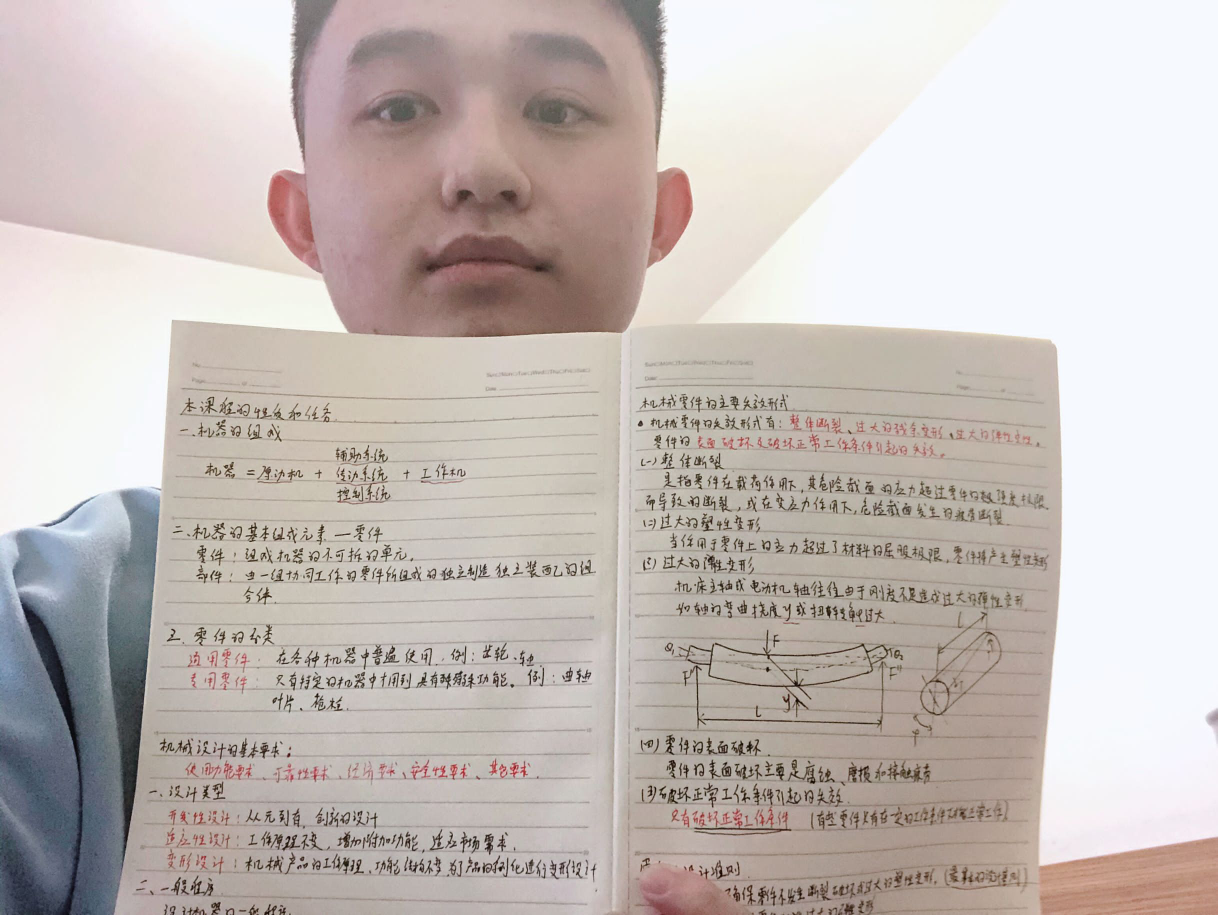 No.
Page
Sun□Mon□Tue□Wed□Thu□Fri□Sat□
Date
本课程的性质和任务.
一.机器的组成
辅助系统
机器 = 原动机 + 传动系统 + 工作机
控制系统
二.机器的基本组成元素 — 零件
零件: 组成机器的不可拆的单元.
部件: 由一组协同工作的零件所组成的独立制造独立装配的组
合体.
三. 零件的分类
通用零件: 在各种机器中普遍使用. 例: 齿轮、轴
专用零件: 只有特定的机器中才用到具有特殊功能. 例: 曲轴
叶片、枪栓.
机械设计的基本要求:
使用功能要求、可靠性要求、经济要求、安全性要求、其他要求.
一、设计类型
开发性设计: 从无到有, 创新的设计
适应性设计: 工作原理不变, 增加附加功能, 适应市场需求.
变形设计: 机械产品的工作原理、功能结构不变, 为产品的系列化进行变形设计
二、一般程序
设计机器的一般程序
Sun□Mon□Tue□Wed□Thu□Fri□Sat□
Date
No.
Page
机械零件的主要失效形式
• 机械零件的失效形式有: 整体断裂、过大的残余变形、过大的弹性变形、
零件的表面破坏及破坏正常工作条件引起的失效。
(一) 整体断裂
是指零件在载荷作用下, 其危险截面的应力超过零件的极限强度极限
而导致的断裂, 或在变应力作用下, 危险截面发生的疲劳断裂
(二) 过大的塑性变形
当作用于零件上的应力超过了材料的屈服极限, 零件将产生塑性变形
(三) 过大的弹性变形
机床主轴或电动机轴往往由于刚度不足造成过大的弹性变形.
如轴的弯曲挠度y或扭转角φ过大
θ₁ F θ₂ l
F' F''
y
l φ
(四) 零件的表面破坏.
零件的表面破坏主要是腐蚀、磨损和接触疲劳
(五) 破坏正常工作条件引起的失效.
只有破坏正常工作条件 (有些零件只有在一定的工作条件下才能正常工作)
设计准则
确保零件不发生断裂破坏或过大的塑性变形, (最基本的设计准则)
过大的弹性变形